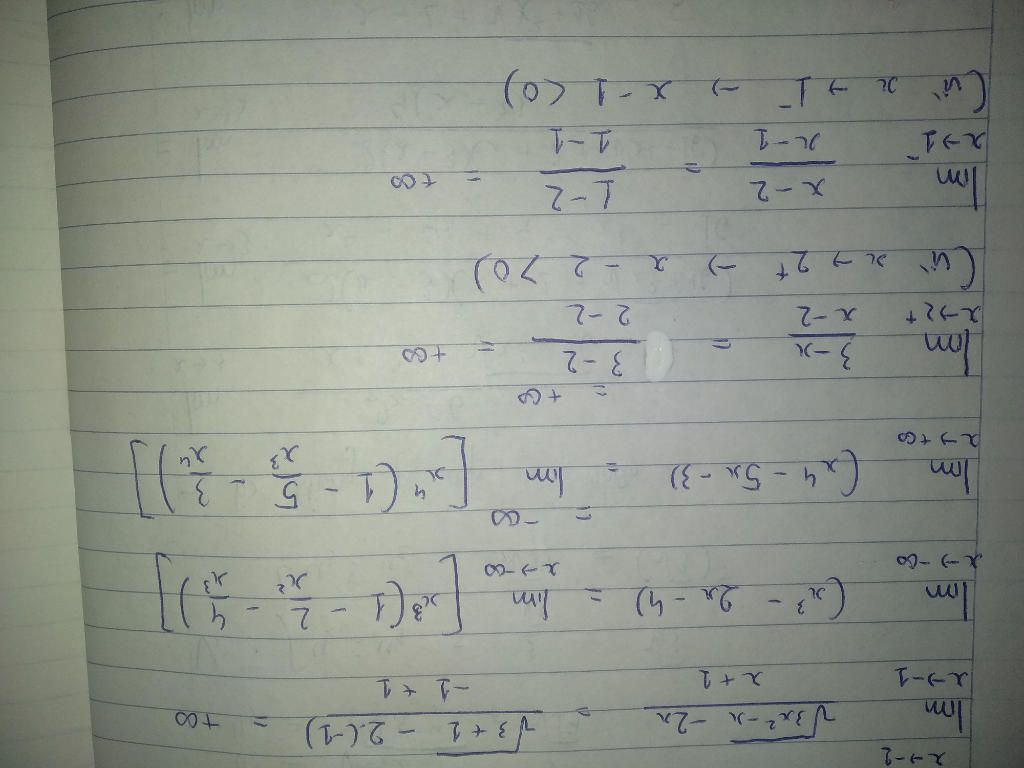 x→-2
lim x→-1 (√(3x² - x) - 2x)/(x + 1) = (√(3 + 1) - 2(-1))/(-1 + 1) = +∞
lim x→-∞ (x³ - 2x - 4) = lim x→-∞ [x³(1 - 2/x² - 4/x³)]
= -∞
lim x→+∞ (x4 - 5x - 3) = lim [x⁴(1 - 5/x³ - 3/x⁴)]
= +∞
lim x→2⁺ (3-x)/(x-2) = (3-2)/(2-2) = +∞
(Vì x → 2⁺ → x - 2 > 0)
lim x→1⁻ (x-2)/(x-1) = (1-2)/(1-1) = +∞
(Vì x → 1⁻ → x - 1 < 0)